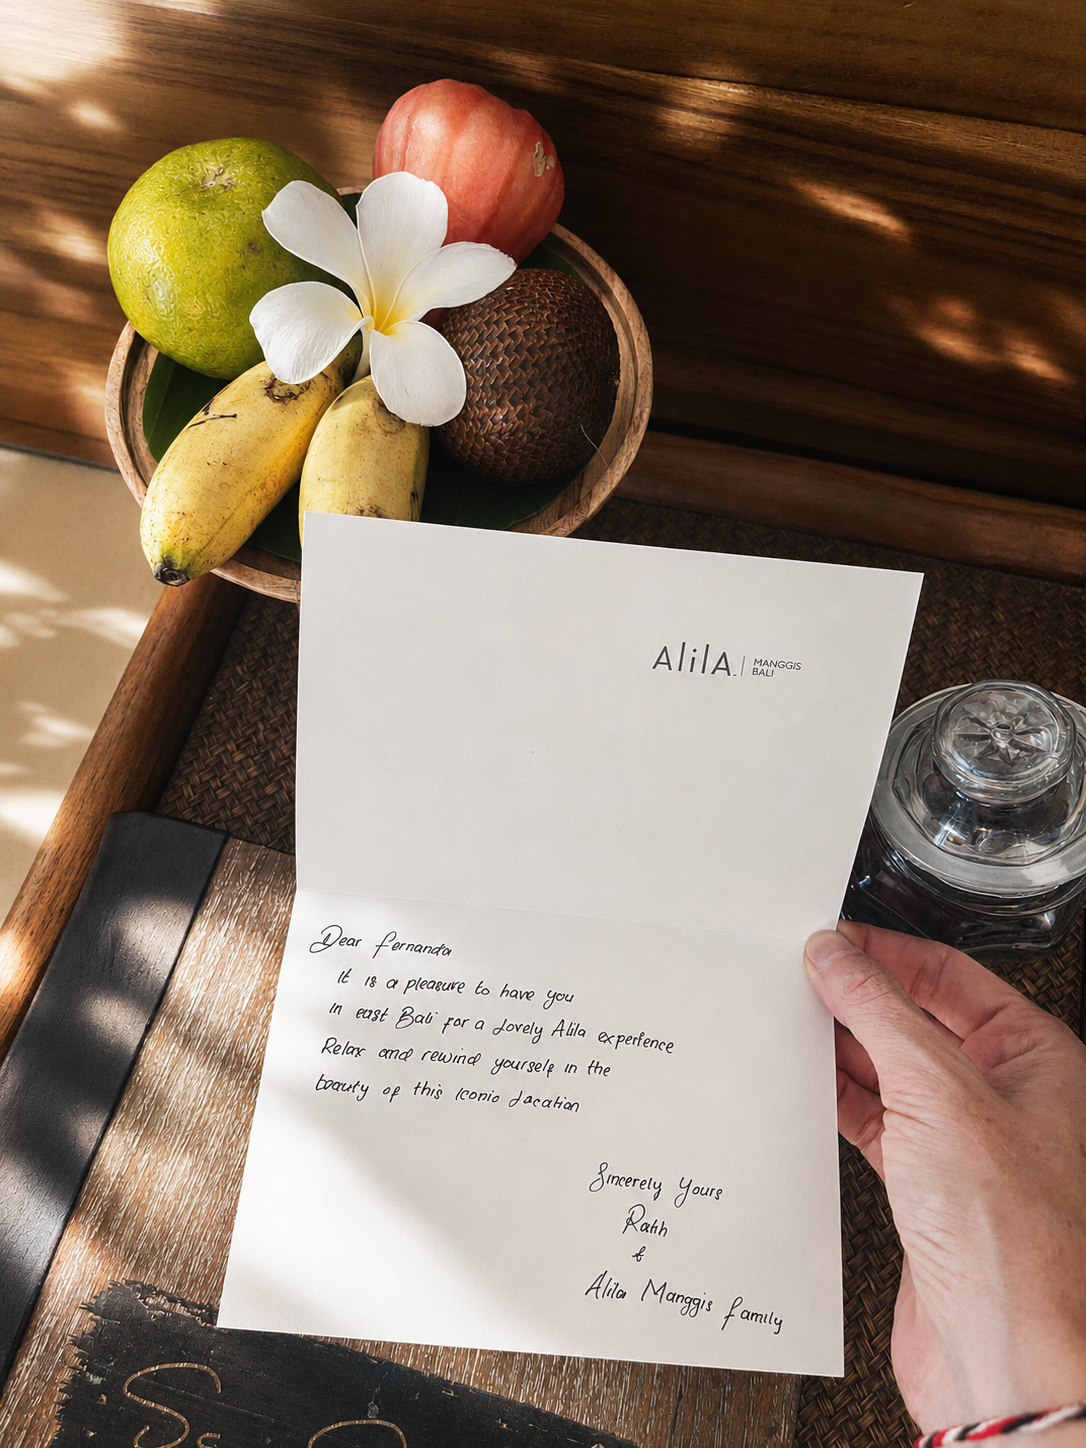 Alila MANGGIS
BALI
Dear Fernanda
It is a pleasure to have you
in east Bali for a Lovely Alila experience
Relax and rewind yourself in the
beauty of this Iconic Location
Sincerely Yours
Ratih
&
Alila Manggis family